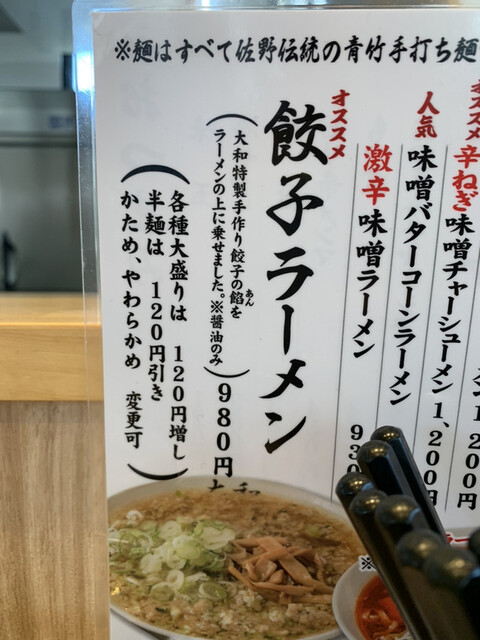 ※麺はすべて佐野伝統の青竹手打ち麺
オススメ
辛ねぎ味噌チャーシューメン 1,200円
人気
味噌バターコーンラーメン 1,200円
激辛味噌ラーメン 930
オススメ
餃子ラーメン
(大和特製手作り餃子の餡を
あん
ラーメンの上に乗せました。※醤油のみ)980円
(各種大盛りは 120円増し
半麺は 120円引き
かため、やわらかめ 変更可)